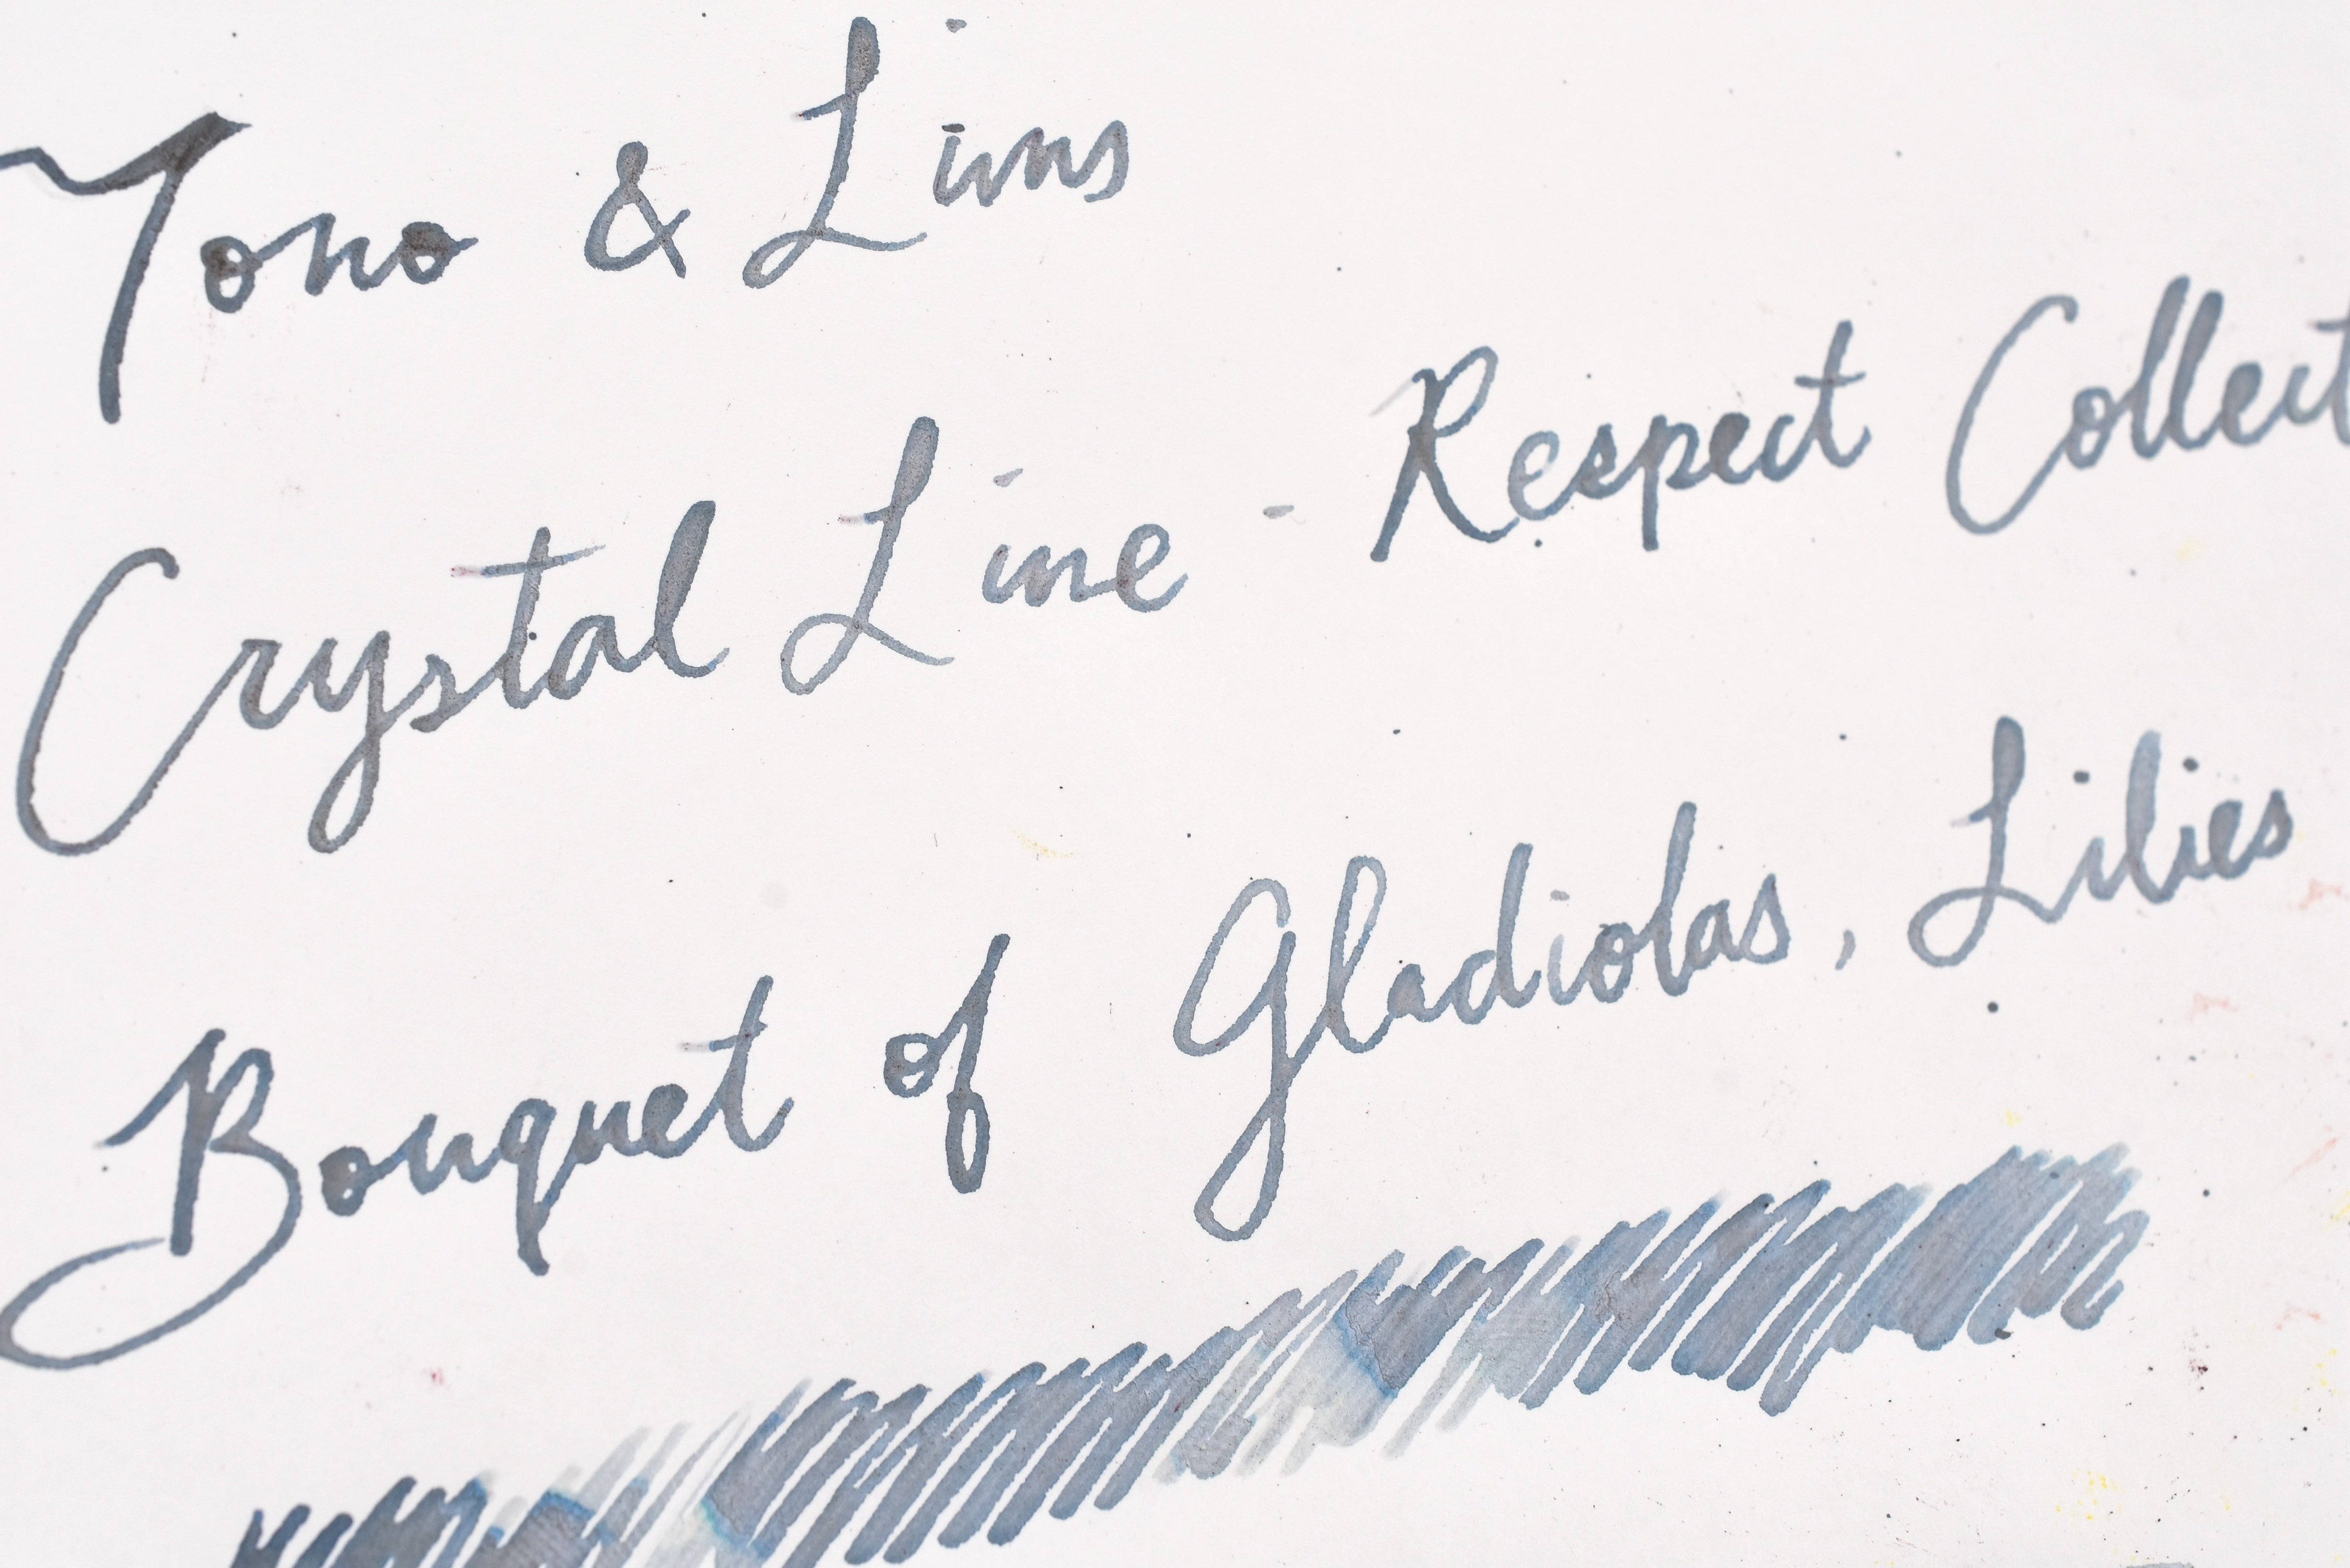 Tono & Lims
Crystal Line - Respect Collect
Bouquet of Gladiolas, Lilies